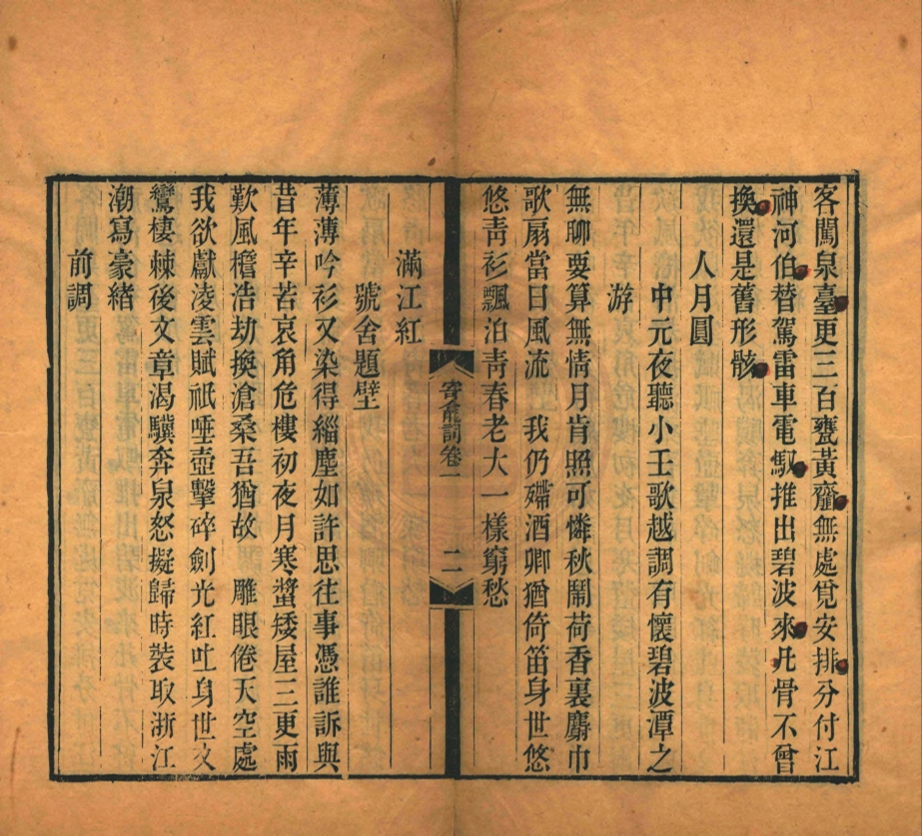 客闖泉臺更三百甕黃虀無處覓安排分付江
神河伯替駕雷車電馭推出碧波來凡骨不曾
換還是舊形骸
人月圓
中元夜聽小玉歌越調有懷碧波潭之
游
無聊要算無情月肯照可憐秋鬧荷香裏麝巾
歌扇當日風流　我仍殢酒卿猶倚笛身世悠
悠靑衫飄泊靑春老大一樣窮愁
詞卷一
二
滿江紅
號舍題壁
薄薄吟衫又染得緇塵如許思往事憑誰訴與
昔年辛苦哀角危樓初夜月寒螿矮屋三更雨
歎風檐浩劫換滄桑吾猶故　雕眼倦天空處
我欲獻凌雲賦祇唾壺擊碎劍光紅吐身世文
鸞棲棘後文章渴驥奔泉怒擬歸時裝取浙江
潮寫豪緒
前調